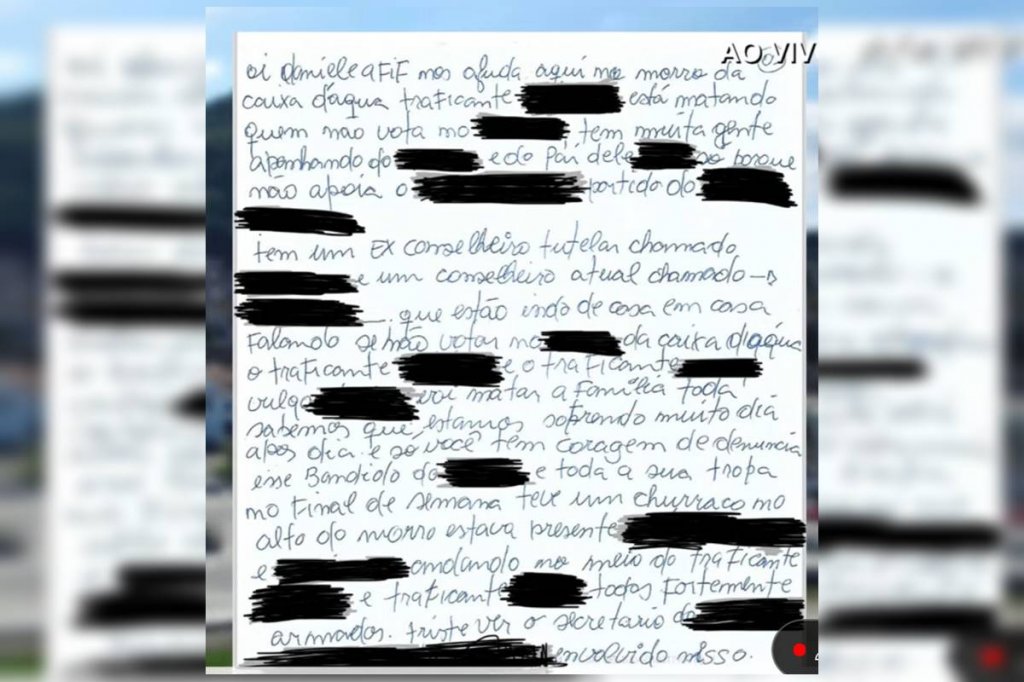 AO VIV
oi daniele a FiF nos ajuda aqui no morro da
caixa d'agua traficante está matando
quem não vota no tem muita gente
apanhando do e do pai dele so porque
não apoia o partido do
tem um EX conselheiro tutelar chamado
e um conselheiro atual chamado →
que estão indo de casa em casa
Falando se não votar no da caixa d'agua
o traficante e o traficante
vulgo vai matar a Família toda
sabemos que estamos sofrendo muito dia
apos dia e só você tem coragem de denuncia
esse Bandido do e toda a sua tropa
no Final de semana teve um churraco no
alto do morro estava presente
e andando no meio do traficante
e traficante todos Fortemente
armados. triste ver o secretario do
envolvido nisso.